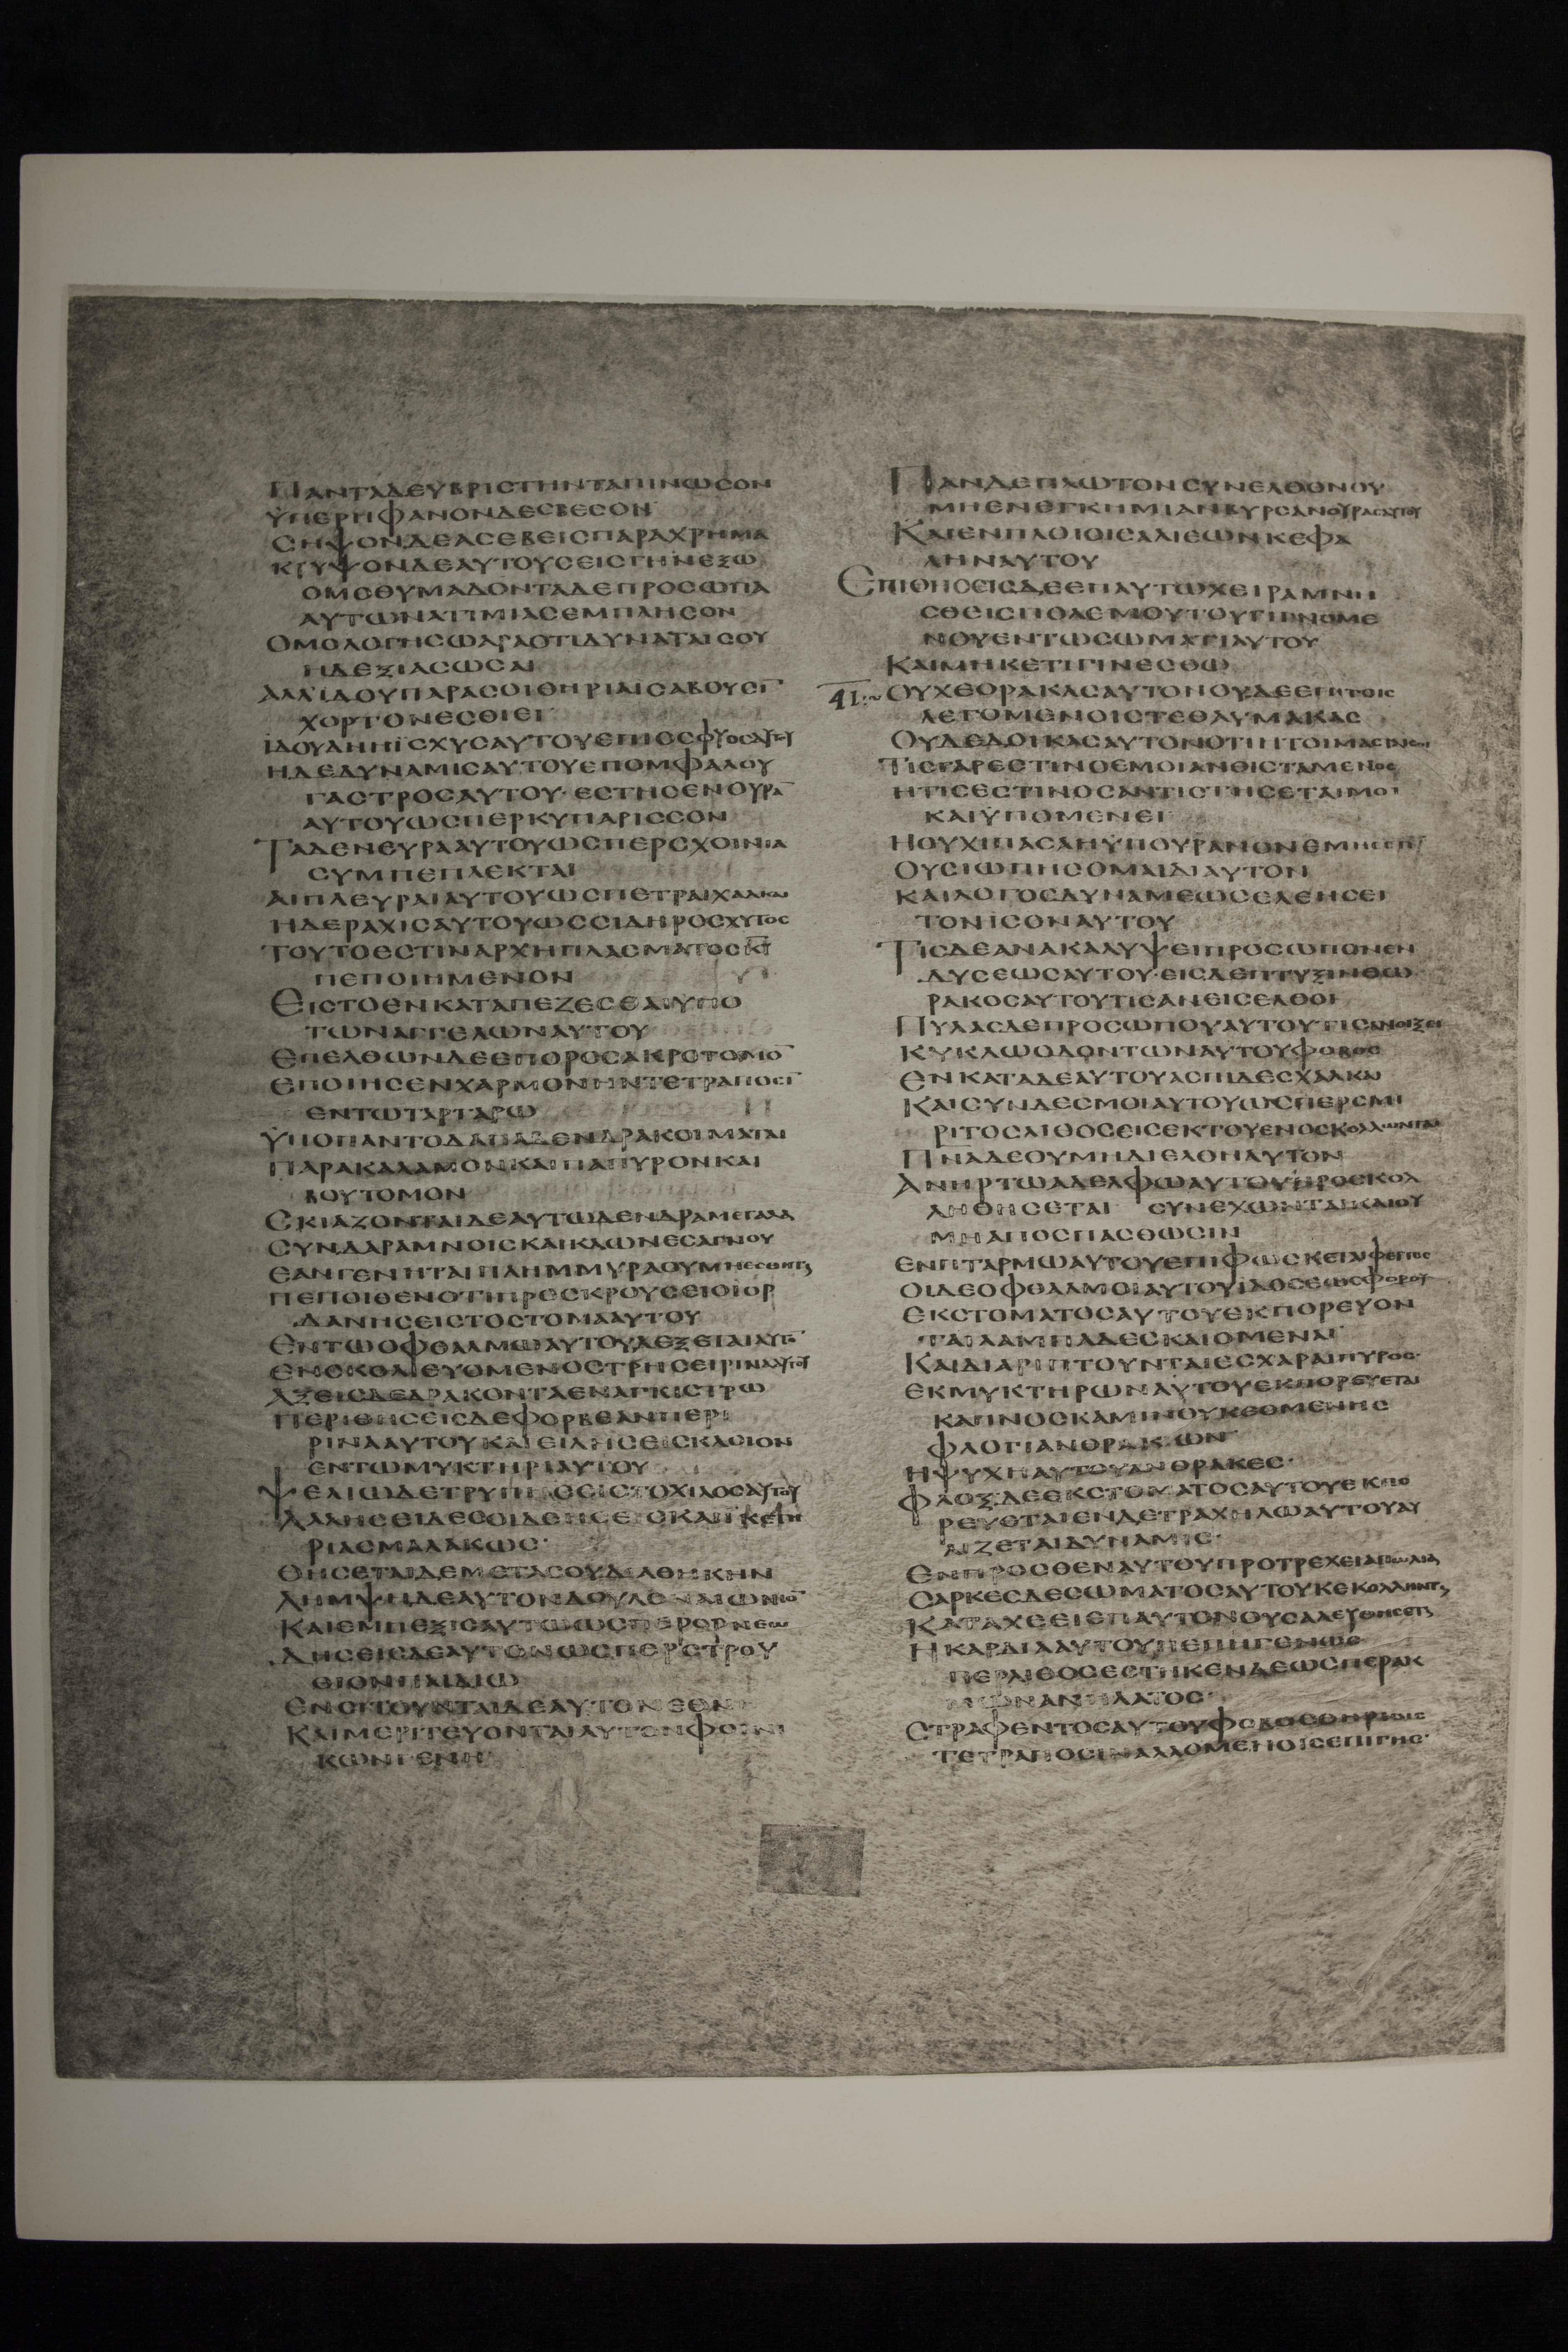 ΠΑΝΤΑΔΕΥΒΡΙΣΤΗΝΤΑΠΙΝΩΣΟΝ
ΫΠΕΡΗΦΑΝΟΝΔΕΣΒΕΣΟΝ
ΣΗΨΟΝΔΕΑΣΕΒΕΙΣΠΑΡΑΧΡΗΜΑ
ΚΡΥΨΟΝΔΕΑΥΤΟΥΣΕΙΣΓΗΝΕΞΩ
ΟΜΟΘΥΜΑΔΟΝΤΑΔΕΠΡΟΣΩΠΑ
ΑΥΤΩΝΑΤΙΜΙΑΣΕΜΠΛΗΣΟΝ
ΟΜΟΛΟΓΗΣΩΑΡΑΟΤΙΔΥΝΑΤΑΙΣΟΥ
ΗΔΕΞΙΑΣΩΣΑΙ
ΑΛΛΙΔΟΥΠΑΡΑΣΟΙΘΗΡΙΑΙΣΑΒΟΥΣΙ̅
ΧΟΡΤΟΝΕΣΘΙΕΙ
ΪΔΟΥΔΗΗΪΣΧΥΣΑΥΤΟΥΕΠΟΣΦΥΟΣΑΥΤΟΥ
ΗΔΕΔΥΝΑΜΙΣΑΥΤΟΥΕΠΟΜΦΑΛΟΥ
ΓΑΣΤΡΟΣΑΥΤΟΥ·ΕΣΤΗΣΕΝΟΥΡΑ̅
ΑΥΤΟΥΩΣΠΕΡΚΥΠΑΡΙΣΣΟΝ
ΤΑΔΕΝΕΥΡΑΑΥΤΟΥΩΣΠΕΡΣΧΟΙΝΙΑ
ΣΥΜΠΕΠΛΕΚΤΑΙ
ΑΙΠΛΕΥΡΑΙΑΥΤΟΥΩΣΠΕΤΡΑΙΧΑΛΚΑΙ
ΗΔΕΡΑΧΙΣΑΥΤΟΥΩΣΣΙΔΗΡΟΣΧΥΤΟΣ
ΤΟΥΤΟΕΣΤΙΝΑΡΧΗΠΛΑΣΜΑΤΟΣΚΥ̅
ΠΕΠΟΙΗΜΕΝΟΝ
ΕΙΣΤΟΕΝΚΑΤΑΠΕΖΕΣΕΑΙΥΠΟ
ΤΩΝΑΓΓΕΛΩΝΑΥΤΟΥ
ΕΠΕΛΘΩΝΔΕΕΠΟΡΟΣΑΚΡΟΤΟΜΟ̅
ΕΠΟΙΗΣΕΝΧΑΡΜΟΝΗΝΤΕΤΡΑΠΟΣΙ̅
ΕΝΤΩΤΑΡΤΑΡΩ
ΫΠΟΠΑΝΤΟΔΑΠΑΔΕΝΔΡΑΚΟΙΜΑΤΑΙ
ΠΑΡΑΚΑΛΑΜΟΝΚΑΙΠΑΠΥΡΟΝΚΑΙ
ΒΟΥΤΟΜΟΝ
ΣΚΙΑΖΟΝΤΑΙΔΕΑΥΤΩΔΕΝΔΡΑΜΕΓΑΛΑ
ΣΥΝΔΑΡΑΜΝΟΙΣΚΑΙΚΛΩΝΕΣΑΓΝΟΥ
ΕΑΝΓΕΝΗΤΑΙΠΛΗΜΜΥΡΑΟΥΜΗ
ΠΕΠΟΙΘΕΝΟΤΙΠΡΟΣΚΡΟΥΣΕΙΟΪΟΡ
ΔΑΝΗΣΕΙΣΤΟΣΤΟΜΑΑΥΤΟΥ
ΕΝΤΩΟΦΘΑΛΜΩΑΥΤΟΥΔΕΞΕΤΑΙΑΥΤΟ̅
ΕΝΣΚΟΛΙΕΥΟΜΕΝΟΣΤΡΗΣΕΙΡΙΝΑΑΥΤΟΥ
ΑΞΕΙΣΔΕΔΡΑΚΟΝΤΑΕΝΑΓΚΙΣΤΡΩ
ΠΕΡΙΘΗΣΕΙΣΔΕΦΟΡΒΕΑΝΠΕΡΙ
ΡΙΝΑΑΥΤΟΥΚΑΙΕΙΛΗΣΕΙΣΚΛΟΙΟΝ
ΕΝΤΩΜΥΚΤΗΡΙΑΥΤΟΥ
ΨΕΛΙΩΔΕΤΡΥΠΗΣΕΙΣΤΟΧΙΛΟΣΑΥΤΟΥ
ΛΑΛΗΣΕΙΔΕΣΟΙΔΕΗΣΕΙΣΚΑΙΪΚΕΤΗ
ΡΙΑΕΜΑΛΑΚΩΣ·
ΘΗΣΕΤΑΙΔΕΜΕΤΑΣΟΥΔΙΑΘΗΚΗΝ
ΛΗΜΨΗΔΕΑΥΤΟΝΔΟΥΛΟΝΑΙΩΝΙΟ̅
ΚΑΙΕΜΠΕΞΙΣΑΥΤΩΩΣΠΕΡΟΡΝΕΩ
ΔΗΣΕΙΣΔΕΑΥΤΟΝΩΣΠΕΡΣΤΡΟΥ
ΘΙΟΝΠΑΙΔΙΩ
ΕΝΣΙΤΟΥΝΤΑΙΔΕΑΥΤΟΝΕΘΝΗ
ΚΑΙΜΕΡΙΤΕΥΟΝΤΑΙΑΥΤΟΝΦΟΙΝΙ
ΚΩΝΓΕΝΗ
ΠΑΝΔΕΠΛΩΤΟΝΣΥΝΕΛΘΟΝΟΥ
ΜΗΕΝΕΓΚΗΜΙΑΝΒΥΡΣΑΝΟΥΡΑΣΑΥΤΟΥ
ΚΑΙΕΝΠΛΟΙΟΙΣΑΛΙΕΩΝΚΕΦΑ
ΛΗΝΑΥΤΟΥ
ΕΠΙΘΗΣΕΙΣΔΕΕΠΑΥΤΩΧΕΙΡΑΜΝΗ
ΣΘΕΙΣΠΟΛΕΜΟΥΤΟΥΓΙΝΟΜΕ
ΝΟΥΕΝΤΩΣΩΜΑΤΙΑΥΤΟΥ
ΚΑΙΜΗΚΕΤΙΓΙΝΕΣΘΩ
41:~ ΟΥΧΕΟΡΑΚΑΣΑΥΤΟΝΟΥΔΕΕΠΙΤΟΙΣ
ΛΕΓΟΜΕΝΟΙΣΤΕΘΑΥΜΑΚΑΣ
ΟΥΔΕΔΟΙΚΑΣΑΥΤΟΝΟΤΙΗΤΟΙΜΑΣΤΑΙΜΟΙ
ΤΙΣΓΑΡΕΣΤΙΝΟΕΜΟΙΑΝΘΙΣΤΑΜΕΝΟΣ
ΗΤΙΣΕΣΤΙΝΟΣΑΝΤΙΣΤΗΣΕΤΑΙΜΟΙ
ΚΑΙΫΠΟΜΕΝΕΙ
ΗΟΥΧΙΠΑΣΑΗΫΠΟΥΡΑΝΟΝΕΜΗ
ΟΥΣΙΩΠΗΣΟΜΑΙΔΙΑΥΤΟΝ
ΚΑΙΛΟΓΟΣΔΥΝΑΜΕΩΣΕΛΕΗΣΕΙ
ΤΟΝΪΣΟΝΑΥΤΟΥ
ΤΙΣΔΕΑΝΑΚΑΛΥΨΕΙΠΡΟΣΩΠΟΝΕΝ
ΔΥΣΕΩΣΑΥΤΟΥ·ΕΙΣΔΕΠΤΥΞΙΝΘΩ
ΡΑΚΟΣΑΥΤΟΥΤΙΣΑΝΕΙΣΕΛΘΟΙ
ΠΥΛΑΣΔΕΠΡΟΣΩΠΟΥΑΥΤΟΥΤΙΣΑΝΟΙΞΕΙ
ΚΥΚΛΩΟΔΟΝΤΩΝΑΥΤΟΥΦΟΒΟΣ
ΕΝΚΑΤΑΔΕΑΥΤΟΥΑΣΠΙΔΕΣΧΑΛΚΑΙ
ΚΑΙΣΥΝΔΕΣΜΟΙΑΥΤΟΥΩΣΠΕΡΣΜΙ
ΡΙΤΟΣΛΙΘΟΣΕΙΣΕΚΤΟΥΕΝΟΣΚΟΛΛΩΝΤΑΙ
ΠΝΑΔΕΟΥΜΗΔΙΕΛΘΗΑΥΤΟΝ
ΑΝΗΡΤΩΑΔΕΛΦΩΑΥΤΟΥΠΡΟΣΚΟΛ
ΛΗΘΗΣΕΤΑΙ ΣΥΝΕΧΩΝΤΑΙΚΑΙΟΥ
ΜΗΑΠΟΣΠΑΣΘΩΣΙΝ
ΕΝΠΤΑΡΜΩΑΥΤΟΥΕΠΙΦΩΣΚΕΤΑΙΦΕΓΓΟΣ
ΟΙΔΕΟΦΘΑΛΜΟΙΑΥΤΟΥΪΔΟΣΕΩΣΦΟΡΟΥ
ΕΚΣΤΟΜΑΤΟΣΑΥΤΟΥΕΚΠΟΡΕΥΟΝ
ΤΑΙΛΑΜΠΑΔΕΣΚΑΙΟΜΕΝΑΙ
ΚΑΙΔΙΑΡΙΠΤΟΥΝΤΑΙΕΣΧΑΡΑΙΠΥΡΟΣ·
ΕΚΜΥΚΤΗΡΩΝΑΥΤΟΥΕΚΠΟΡΕΥΕΤΑΙ
ΚΑΠΝΟΣΚΑΜΙΝΟΥΚΕΟΜΕΝΗΣ
ΦΛΟΓΙΑΝΘΡΑΚΩΝ
ΗΨΥΧΗΑΥΤΟΥΑΝΘΡΑΚΕΣ·
ΦΛΟΞΔΕΕΚΣΤΟΜΑΤΟΣΑΥΤΟΥΕΚΠΟ
ΡΕΥΕΤΑΙΕΝΔΕΤΡΑΧΗΛΩΑΥΤΟΥΑΥ
ΛΙΖΕΤΑΙΔΥΝΑΜΙΣ·
ΕΝΠΡΟΣΘΕΝΑΥΤΟΥΠΡΟΤΡΕΧΕΙΑΠΩΛΙΑ
ΣΑΡΚΕΣΔΕΣΩΜΑΤΟΣΑΥΤΟΥΚΕΚΟΛΛΗΝΤ
ΚΑΤΑΧΕΕΙΕΠΑΥΤΟΝΟΥΣΑΛΕΥΘΗΣΕΤ
ΗΚΑΡΔΙΑΑΥΤΟΥΠΕΠΗΓΕΝΩΣ
ΠΕΡΛΙΘΟΣΕΣΤΗΚΕΝΔΕΩΣΠΕΡΑΚ
ΜΩΝΑΝΗΛΑΤΟΣ·
ΣΤΡΑΦΕΝΤΟΣΑΥΤΟΥΦΟΒΟΣΘΗΡΙΟΙΣ
ΤΕΤΡΑΠΟΣΙΝΑΛΛΟΜΕΝΟΙΣΕΠΙΓΗΣ·